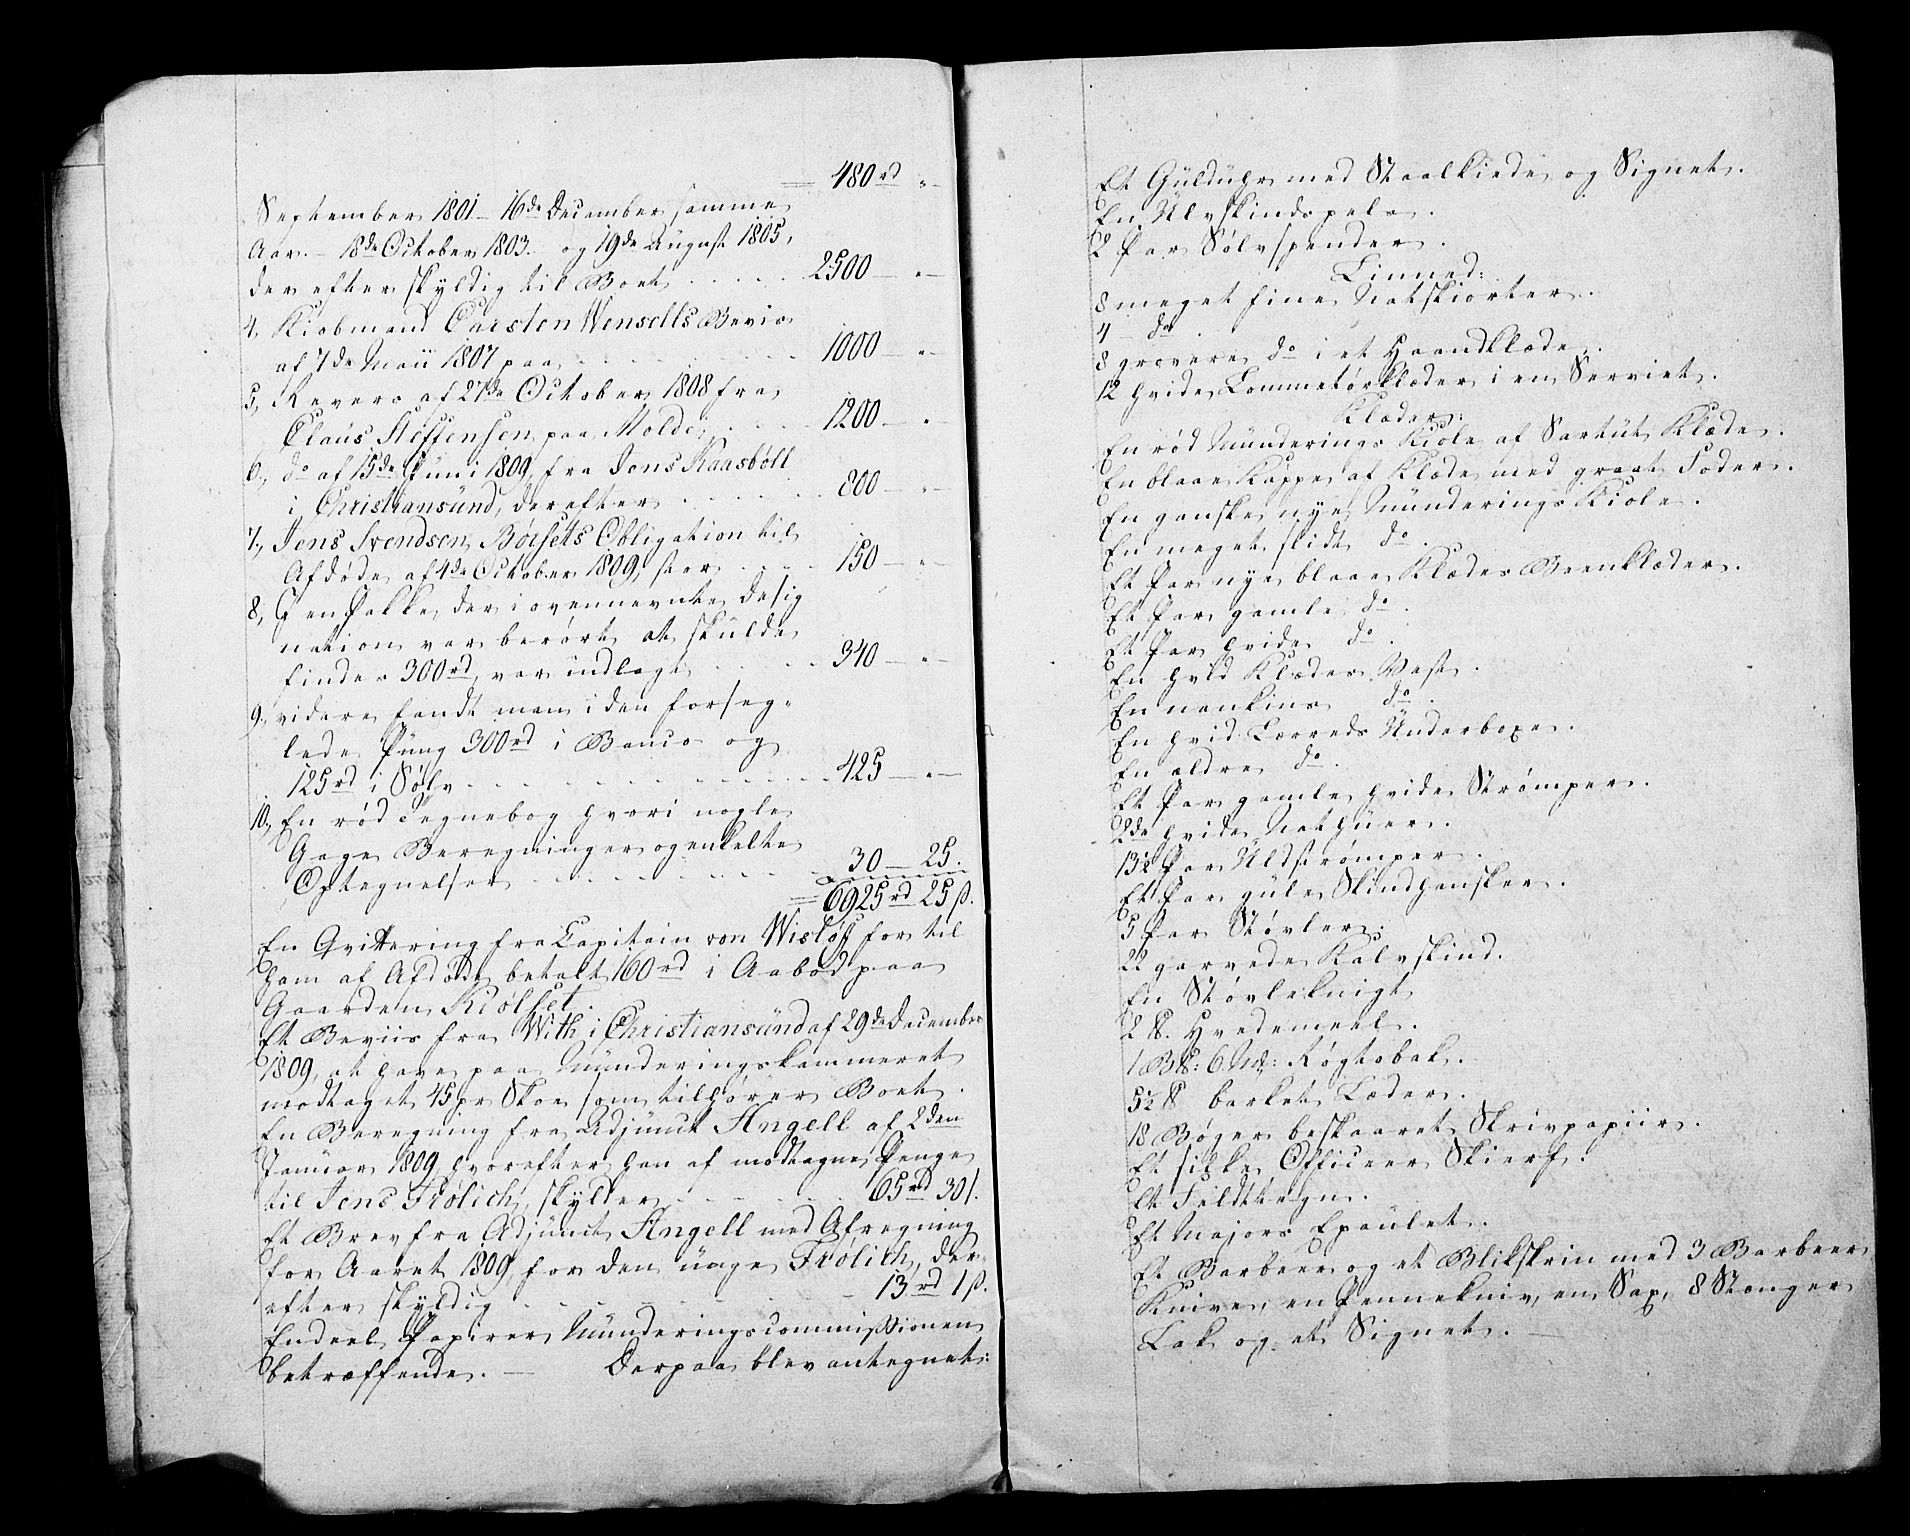 = 480 rd "-
September 1801 - 16de December samme
Aar. - 18de October 1803. og 19de August 1805,
der efter skyldig til Boet . . . . . 2500 - "-
4, Kiøbmand Carsten Wensells Beviis
af 7de Maii 1807 paa . . . . . 1000 - "-
5, Revers af 27de October 1808 fra
Claus Steffensen paa Molde . . . . 1200 - "-
6, do af 15de Juni 1809, fra Jens Kaasbøll
i Christiansund, derefter . . . . . . 800 - "-
7, Jens Svendsen Børsets Obligation til
Afdøde af 4de October 1809, stor . . . . 150 - "-
8, I en Pakke, der i ovennevnte Desig
nation var berørt at skulde
findes 300 rd, var indlagt . . . . . 340 - "-
9, videre fandt man i den forseg-
lede Pung 300 rd i Banco og
125 rd i Sølv . . . . . . . . 425 - "-
10, En rød Tegnebog hvori nogle
Gage Beregninger og enkelte
Optegnelser . . . . . . . 30 - 25.
= 6925 rd 25 ß.
En Qvittering fra Capitain von Wisløff for til
ham af Afdøde betalt 160 rd i Aabod paa
Gaarden Kiølset.
Et Beviis fra With i Christiansund af 29de December
1809, at have paa Munderingskammeret
modtaget 45 pr Skoe som tilhører Boet.
En Beregning fra Adjunct Angell af 2den
Januar 1809, hvorefter han af modtagne Penge
til Jens Frølich, skylder . . . . . 65 rd 30 ß.
Et Brev fra Adjunct Angell med Afregning
for Aaret 1809, for den unge Frølich, der-
efter skyldig . . . . . . 13 rd 1 ß.
Endeel Papirer Munderingscommissionen
betræffende. - Derpaa blev antegnet:
Et Gulduhr med Staalkiede og Signet.
En Ulvskindspels.
2 Par Sølvspender.
Linned:
8 meget fine Natskiorter.
4 - do.
8 grovere do i et Haandklæde.
12 hvide Lommetørklæder i en Serviet.
Klæder:
En rød Munderings Kiole af Sartut Klæde.
En blaae Kappe af Klæde med graat Foder.
En ganske nye Munderings Kiole.
En meget slidt do.
Et Par nye blaae Klædes Beenklæder.
Et Par gamle do.
Et Par hvide do.
En hvid Klædes Vest.
En nankins do.
En hvid Lærreds Underboxe.
En ældre do.
Et Par gamle hvide Strømper.
2de hvide Nathuer.
13½ Par Uldstrømper.
Et Par gule Skindhansker.
5 Par Støvler.
22 garvede Kalvskind.
En Støvleknegt
2 ℔. Hvedemeel.
1 B℔: 6 Mk: Røgtobak.
5½ ℔ barket Læder.
18 Bøger beskaaret Skrivpapiir.
Et silke Officeer Skierf.
Et Feldttegn.
Et Majors Epaulet.
Et Barbeer og et Blikskrin med 3 Barbeer
Knive, en Pennekniv, en Sax, 8 Stænger
Lak og et Signet. -